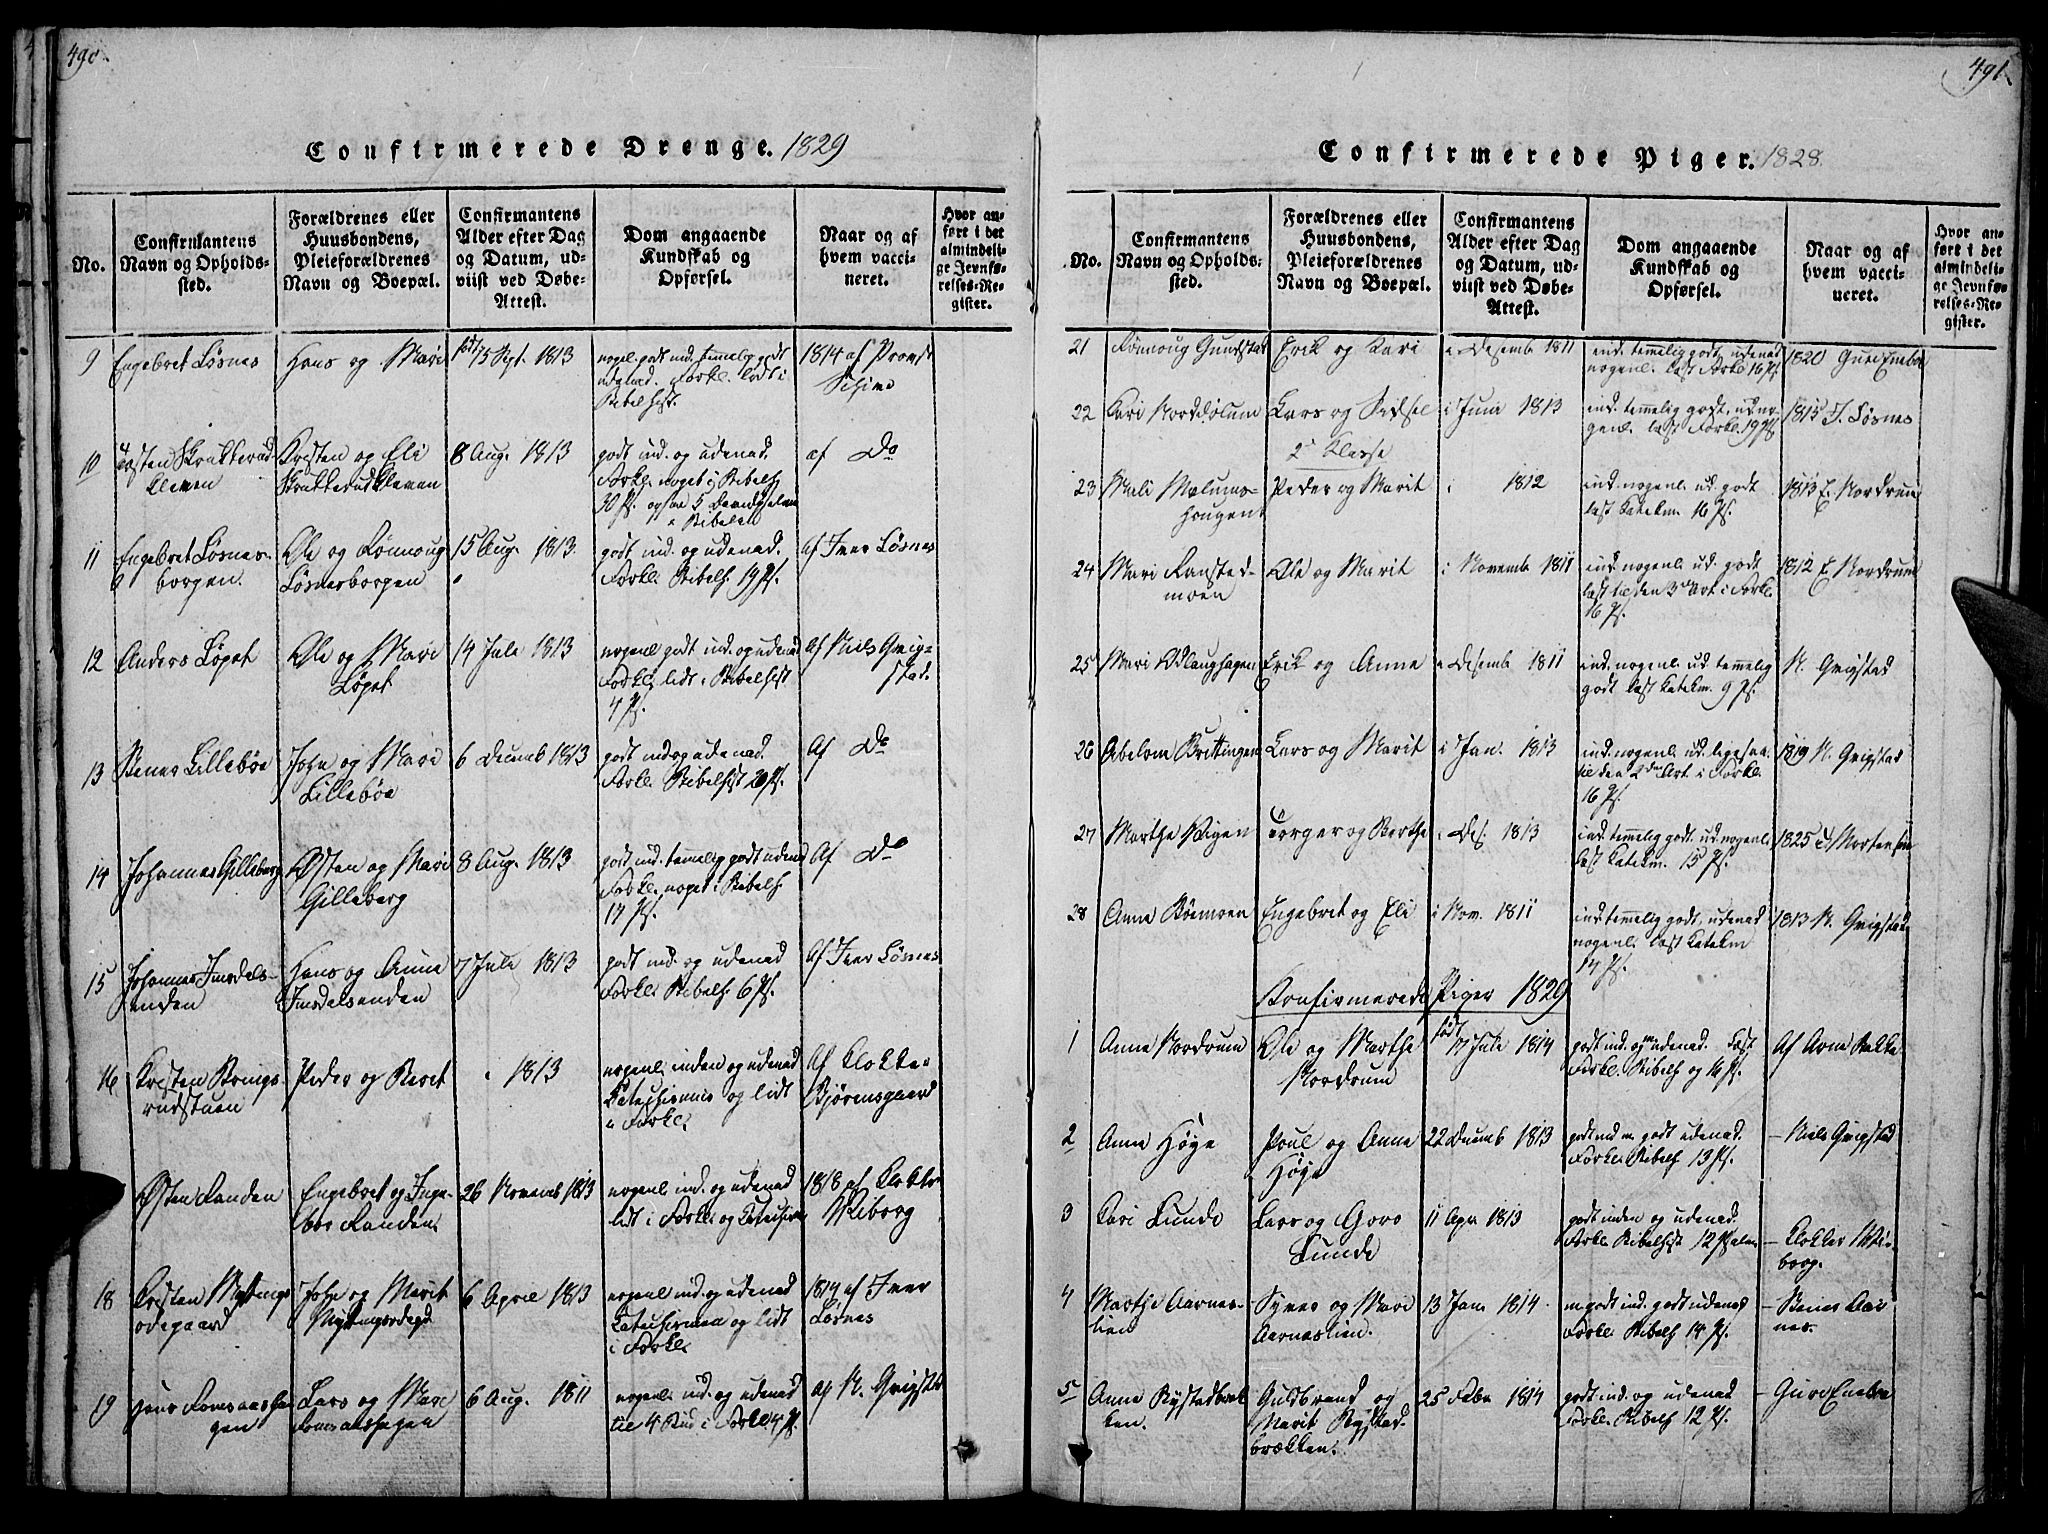 490.
Confirmerede Drenge. 1829
No.
Confirmantens
Navn og Opholds-
sted.
Forældrenes eller
Huusbondens,
Pleieforældrenes
Navn og Boepæl.
Confirmantens
Alder efter Dag
og Datum, ud-
viist ved Døbe-
Attest.
Dom angaaende
Kundskab og
Opførsel.
Naar og af
hvem vacci-
neret.
Hvor an-
ført i det
almindeli-
ge Jevnfø-
relses-Re-
gister.
9 Engebret Løsnes
Hans og Mari
født 15 Sept. 1813
nogenl. godt ind. temmelig godt
udenad. Forkl. lidt i
Bibelhist.
1814 af Provst
10
Kleven
Kresten og Eli
Skrukkerudkleven
8 Aug. 1813
godt ind. og udenad.
Forkl. noget i Bibelh.
30 Ps. og
af Do
11 Engebret Løsnes-
borgen.
Ole og Rønnoug
Løsnesborgen
15 Aug. 1813
godt ind. og udenad.
Forkl. Bibelh. 19 Ps.
af Iver Løsnes
12 Anders Løpet
Ole og Mari
Løpet
14 Juli 1813
nogenl. godt ind. og udenad
Forkl. lidt i Bibelhist.
4 Ps.
af Niels Qvig-
stad.
13 Stener Lillebøe
John og Mari
Lillebøe
6 Decemb 1813
godt ind. og udenad.
Forkl. Bibelhist 20 Ps.
af Do
14 Johannes Gilleberg
Østen og Mari
Gilleberg
8 Aug. 1813
godt ind. temmelig godt udenad
Forkl. noget i Bibelh.
17 Ps.
af Do
15 Johannes Imsdals-
enden
Hans og Anne
Imsdalsenden
7 Juli 1813
godt ind. og udenad
Forkl. Bibelh 6 Ps.
af Iver Løsnes
16 Kresten
rudstuen
Peder og Beret
1813
nogenl. inden og udenad
Catechismus og lidt
i Forkl.
af Klokker
Bjørnsgaard
Østen Randen
Engebret og Inge-
bor Randen.
26 Novemb 1813
nogenl. ind. og udenad
lidt i Forkl. og
1818 af Klokker
Wiborg
18 Kresten Myttings-
ødegaard
John og Marit
6 April 1813
nogenl. ind. og udenad
og lidt
i Forkl.
1814 af Iver
Løsnes
19
gen
Lars og Mari
6 Aug. 1811
nogenl. ind. og udenad
til 4 Bud i Forkl. 4 Ps.
af N. Qvigstad
491.
Confirmerede Piger. 1828.
No.
Confirmantens
Navn og Opholds-
sted.
Forældrenes eller
Huusbondens,
Pleieforældrenes
Navn og Boepæl.
Confirmantens
Alder efter Dag
og Datum, ud-
viist ved Døbe-
Attest.
Dom angaaende
Kundskab og
Opførsel.
Naar og af
hvem vacci-
neret.
Hvor an-
ført i det
almindeli-
ge Jevnfø-
relses-Re-
gister.
21 Rønnoug Gundstad
Erik og Kari
i Desemb 1811
ind. temelig godt, udenad
nogenl. læst Forkl. 16 Ps.
1820 Guri Eneboe
22 Kari Norddølum
Lars og Sidsel
i Juni 1813
ind. temelig godt, ud. no-
genl. læst Forkl. 19 Ps.
1815 I. Løsnes
2den Klasse
23 Mali Mølums-
hougen
Peder og Marit
i 1812
ind. nogenl. ud. godt
læst Katekm. 16 Ps.
1813 E. Nordrum
24 Mari Fansted-
moen
Ole og Marit
i Novemb 1811
ind. nogenl. ud. godt
læst til den 3die Art. i Forkl.
16 Ps.
1812 E. Nordrum
25 Mari Odlaughagen
Erik og Anne
i Desemb 1811
ind. nogenl. ud. temelig
godt læst Katekm. 9 Ps.
N. Qvigstad
26 Abelone Brittingen
Lars og Marit
i Jan. 1813
ind. nogenl. ud. ligesaa
til den 2den Art. i Forkl.
16 Ps.
1819 N. Qvigstad
27 Marthe Stigen
Torger og Berthe
i Des. 1813
ind. temelig godt, ud. nogenl.
læst Katekm. 15 Ps.
1825 Mortensen
28 Anne Bøemoen
Engebret og Eli
i Nov. 1811
ind. temelig godt, udenad
nogenl. læst Katekm
17 Ps.
1813 N. Qvigstad
Konfirmerede Piger 1829
1 Anne Nordrum
Ole og Marthe
Nordrum
født 17 Juli 1814
godt ind. og udenad. læst
Forkl. Bibelh og 16 Ps.
af Arne Bakke
2 Anne Høge
Poul og Anne
Høge
22 Decemb 1813
godt ind m. godt udenad.
Forkl. Bibelh 13 Ps.
– Niels Qvigstad
3 Kari Lunde
Lars og Goro
Lunde
11 Apr. 1813
godt inden og udenad.
Forkl. Bibelhist 12 Psalm
– Klokker Wi-
borg.
4 Marthe Aarnes-
lien
Syver og Mari
Aarneslien.
13 Jan 1814
m. godt ind. godt udenad
Forkl. Bibelh 14 Ps.
– Stener Aar-
nes.
5 Anne Rystadbræk-
ken.
Guldbrand og
Marit Rystad-
brækken.
25 Febr 1814
godt ind. og udenad
Forkl. Bibelh 12 Ps.
– Guri Eneboe